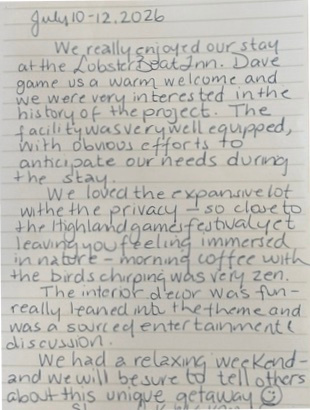 July 10-12, 2026
We really enjoyed our stay
at the Lobster Boat Inn. Dave
game us a warm welcome and
we were very interested in the
history of the project. The
facility was very well equpped,
with obvious efforts to
anticipate our needs during
the stay.
We loved the expansive lot
withe the privacy - so close to
the Highland games festival yet
leaving you feeling immersed
in nature - morning coffee with
the birds chirping was very zen.
The interior decor was fun-
really leaned into the theme and
was a source of entertainment &
discussion.
We had a relaxing weekend-
and we will be sure to tell others
about this unique getaway ☺